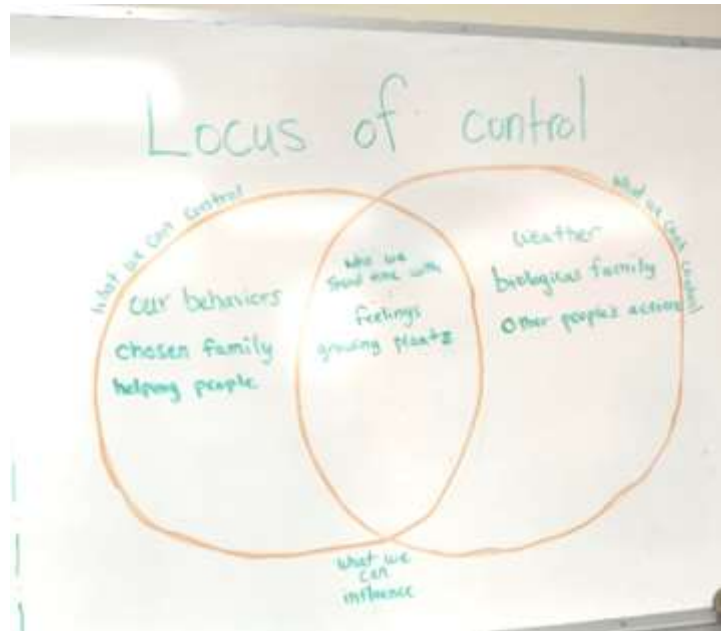 Locus of control
What we can control
our behaviors
chosen family
helping people
who we
spend time with
feelings
growing plants
What we can't control
weather
biological family
other people's actions
what we
can
influence